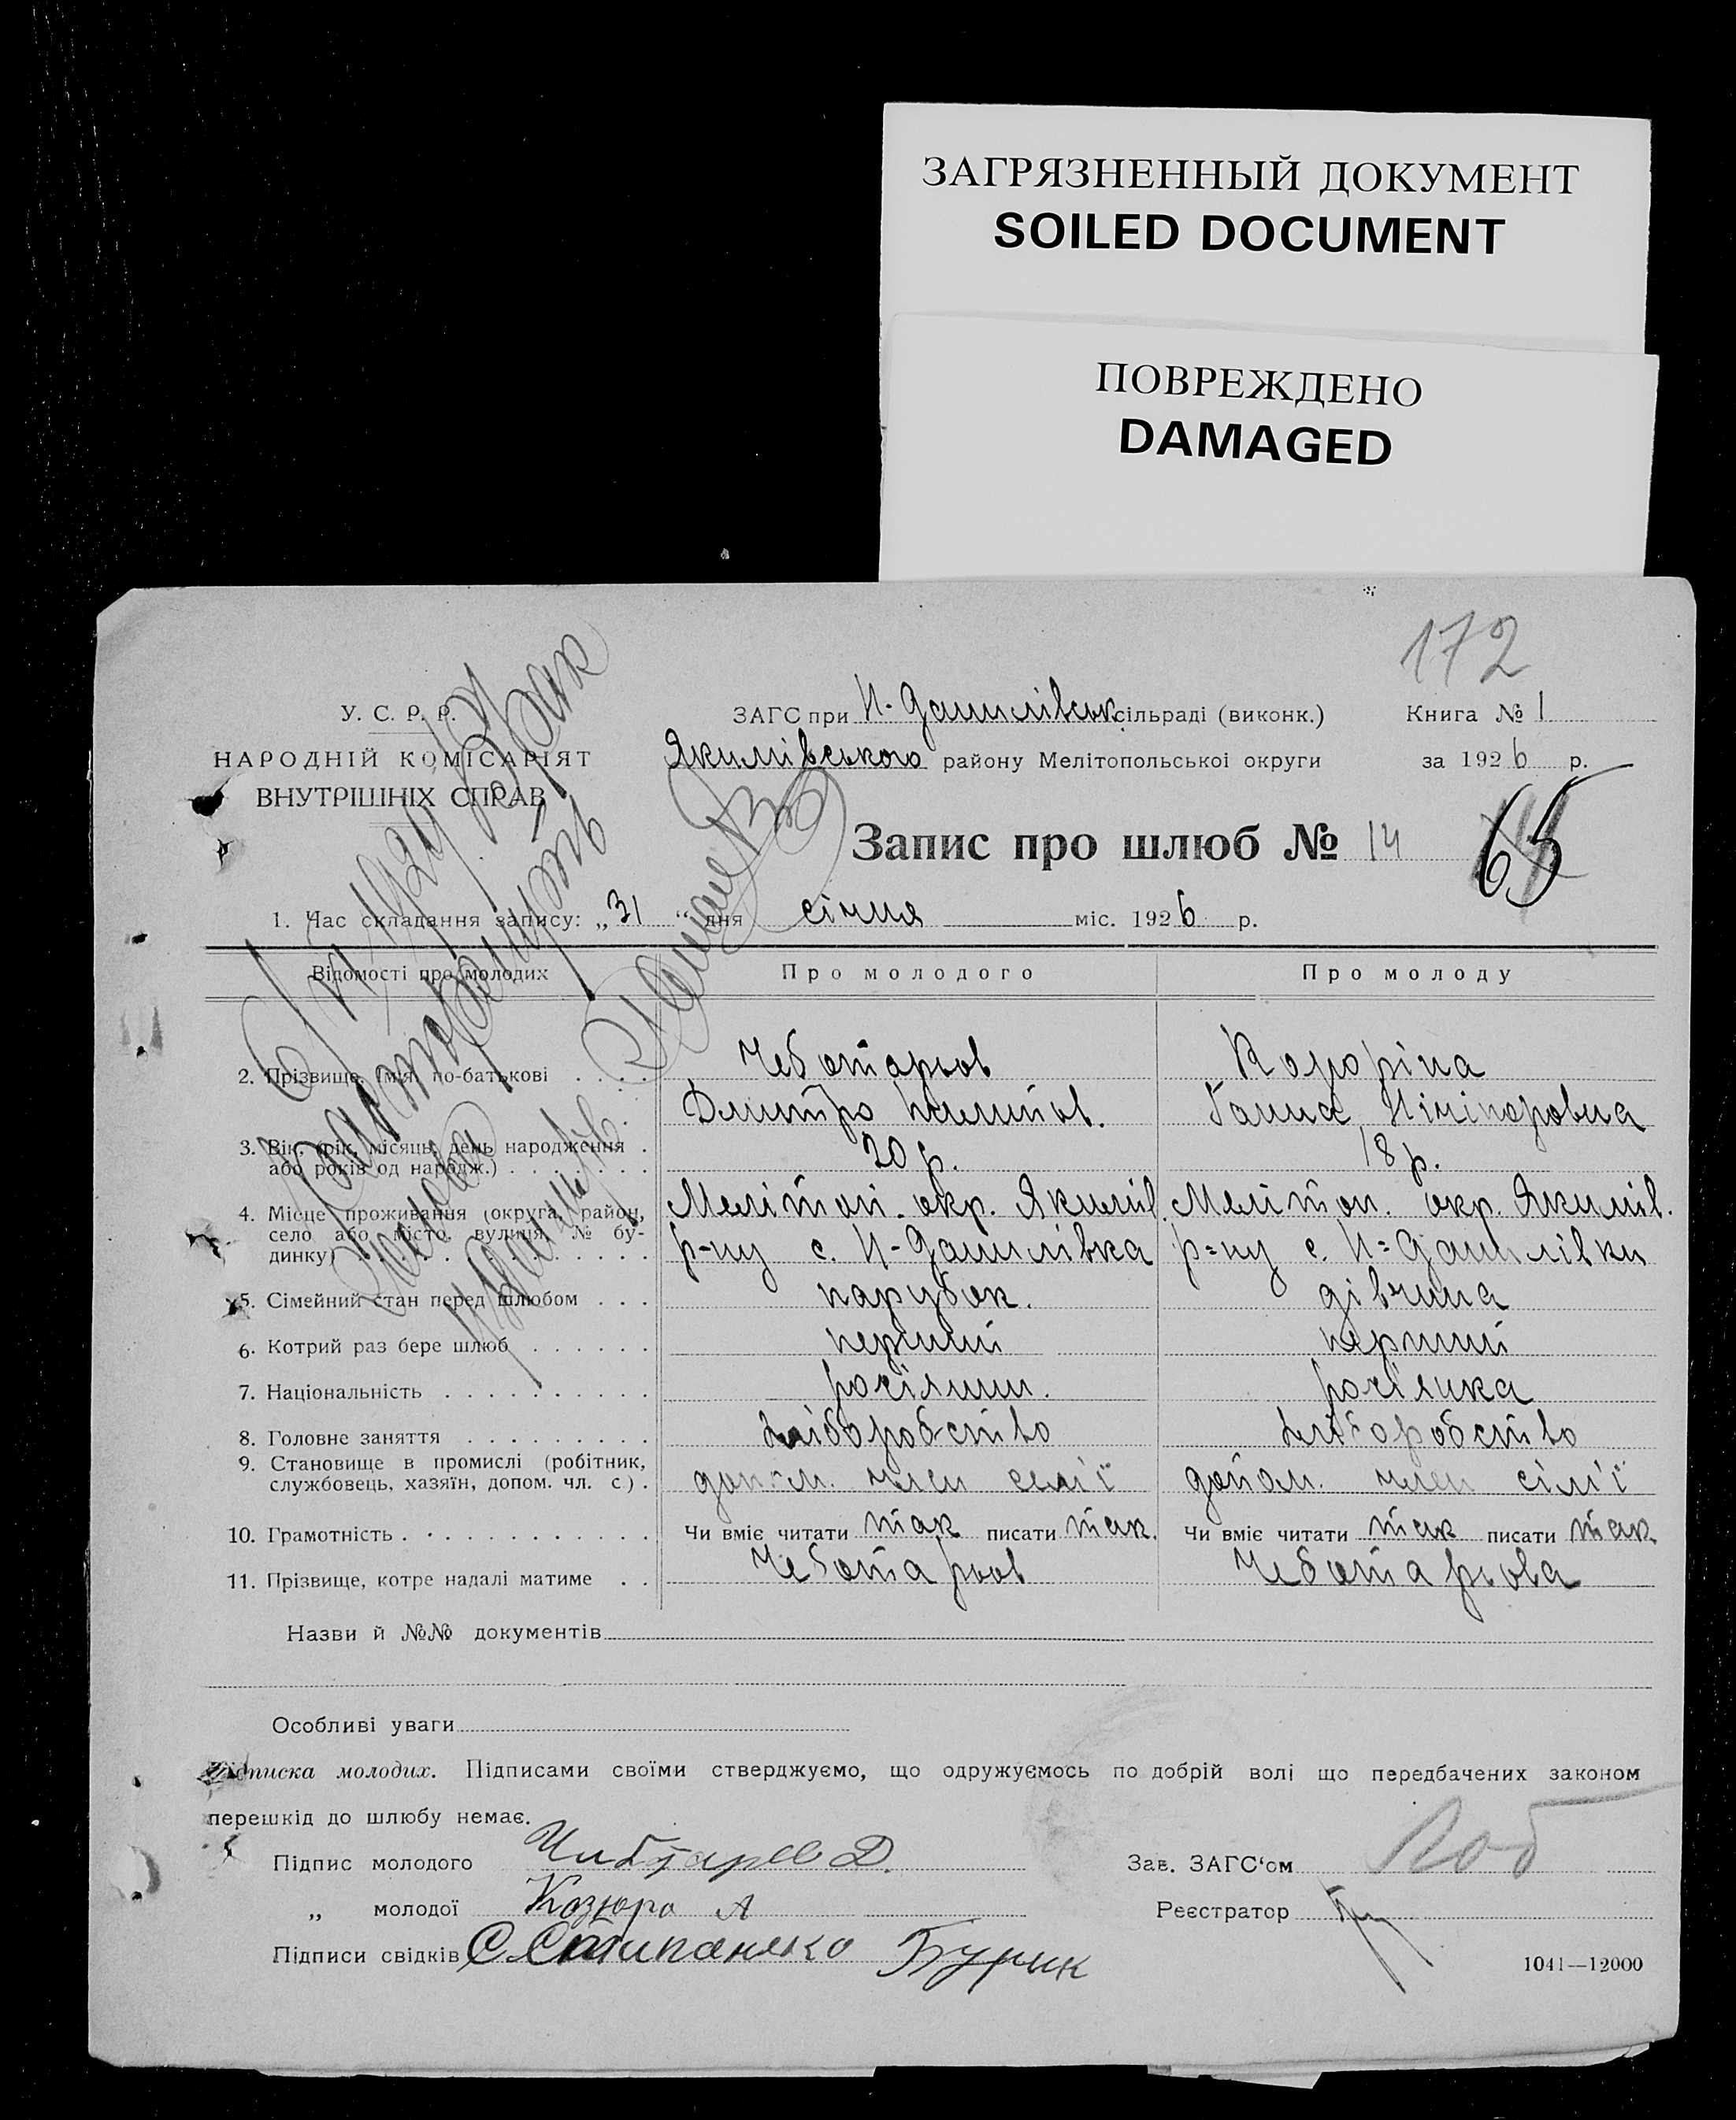 ЗАГРЯЗНЕННЫЙ ДОКУМЕНТ
SOILED DOCUMENT
ПОВРЕЖДЕНО
DAMAGED
172
У. С. Р. Р.
НАРОДНІЙ КОМІСАРІЯТ
ВНУТРІШНІХ СПРАВ
ЗАГС при Н-Данилівськ сільраді (виконк.)
Книга № 1
Якимівського району Мелітопольськоі округи
за 1926 р.
Запис про шлюб № 14
65
1. Час складання запису: „31“ дня січня міс. 1926 р.
Відомості про молодих
Про молодого
Про молоду
2. Прізвище, імя, по-батькові
Чеботарьов
Дмитро
Ганна Нічіпоровна
3. Вік. (рік, місяць, день народження
або років од народж.)
20 р.
18 р.
4. Місце проживання (округа, район,
село або місто, вулиця, № бу-
динку)
Мелітоп. окр. Якимів.
р-ну с. Н-Данилівка
Мелітоп. окр. Якимів.
р=ну с. Н=Данилівки
5. Сімейний стан перед шлюбом
парубок.
дівчина
6. Котрий раз бере шлюб
перший
перший
7. Національність
росіянин.
росіянка
8. Головне заняття
хліборобство
хліборобство
9. Становище в промислі (робітник,
службовець, хазяїн, допом. чл. с.)
допом. член семі'ї
допом. член сімі'ї
10. Грамотність
Чи вміє читати так писати так.
Чи вміє читати так писати так
11. Прізвище, котре надалі матиме
Чеботарьов
Чеботарьова
Назви й №№ документів
Особливі уваги
Підписка молодих. Підписами своїми стверджуємо, що одружуємось по добрій волі що передбачених законом
перешкід до шлюбу немає.
Підпис молодого
Д.
Зав. ЗАГС‘ом
„ молодої Козюра А
Реєстратор
Підписи свідків С. Бурик
1041—12000